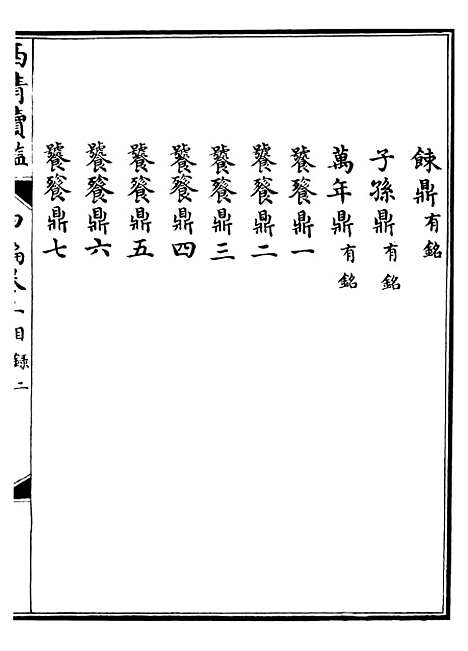 餗鼎有銘
子孫鼎有銘
萬年鼎有銘
饕餮鼎一
饕餮鼎二
饕餮鼎三
饕餮鼎四
饕餮鼎五
饕餮鼎六
饕餮鼎七
西清續鑑 甲編卷一目錄 二